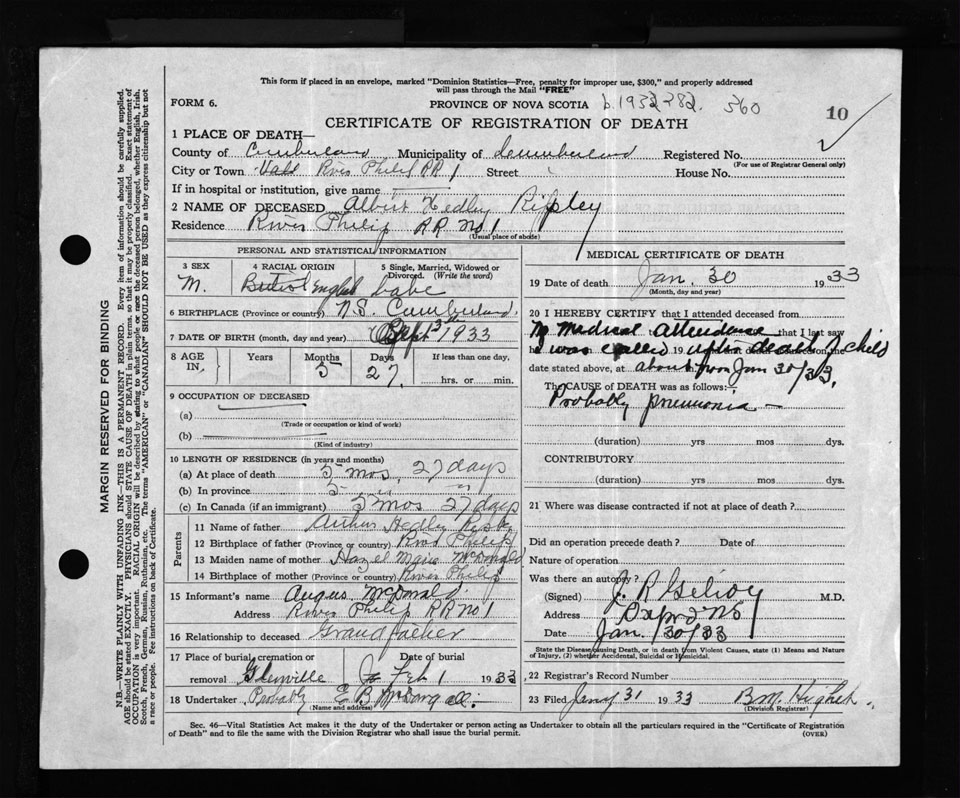 This form if placed in an envelope, marked "Dominion Statistics—Free, penalty for improper use, $300," and properly addressed
will pass through the Mail "FREE"
FORM 6. PROVINCE OF NOVA SCOTIA b. 1932-282. 560 10
CERTIFICATE OF REGISTRATION OF DEATH
1 PLACE OF DEATH—
County of Cumberland Municipality of Cumberland Registered No.
(For use of Registrar General only)
City or Town River Philip RR 1 Street House No.
If in hospital or institution, give name
2 NAME OF DECEASED Albert Hedley Ripley
Residence River Philip RR No 1
(Usual place of abode)
PERSONAL AND STATISTICAL INFORMATION
3 SEX 4 RACIAL ORIGIN 5 Single, Married, Widowed or Divorced. (Write the word)
M. English babe
6 BIRTHPLACE (Province or country) N.S. Cumberland
7 DATE OF BIRTH (month, day and year) 1933
8 AGE IN, Years Months Days If less than one day,
5 27 hrs. or min.
9 OCCUPATION OF DECEASED
(a)
(Trade or occupation or kind of work)
(b)
(Kind of industry)
10 LENGTH OF RESIDENCE (in years and months)
(a) At place of death 5 mos, 27 days
(b) In province 5 " "
(c) In Canada (if an immigrant) 5 mos 27 days
Parents
11 Name of father Arthur Hedley
12 Birthplace of father (Province or country) River Philip
13 Maiden name of mother Hazel Marie McDonald
14 Birthplace of mother (Province or country) River Philip
15 Informant's name Angus McDonald
Address River Philip RR No 1
16 Relationship to deceased Grandfather
17 Place of burial, cremation or removal Date of burial
Glenville Feb 1 1933
18 Undertaker Probably E B
(Name and address)
MEDICAL CERTIFICATE OF DEATH
19 Date of death Jan. 30 1933
(Month, day and year)
20 I HEREBY CERTIFY that I attended deceased from
No medical attendance that I last saw
h was called 19 after death of child
date stated above, at about noon Jan 30/33.
The CAUSE OF DEATH was as follows:
Probably pneumonia —
(duration) yrs mos dys.
CONTRIBUTORY
(duration) yrs mos dys.
21 Where was disease contracted if not at place of death?
Did an operation precede death? Date of
Nature of operation
Was there an autopsy?
(Signed) J. R Gilroy M.D.
Address Oxford NS
Date Jan. /30/33
State the Disease causing Death, or in death from Violent Causes, state (1) Means and Nature of Injury, (2) whether Accidental, Suicidal or Homicidal.
22 Registration Record Number
23 Filed Jany 31 1933 B.M.
(Division Registrar)
Sec. 46—Vital Statistics Act makes it the duty of the Undertaker or person acting as Undertaker to obtain all the particulars required in the "Certificate of Registration
of Death" and to file the same with the Division Registrar who shall issue the burial permit. (OVER)
MARGIN RESERVED FOR BINDING
N.B.—WRITE PLAINLY WITH UNFADING INK—THIS IS A PERMANENT RECORD. Every item of information should be carefully supplied.
AGE should be stated EXACTLY. PHYSICIANS should STATE CAUSE OF DEATH in plain terms, so that it may be properly classified. Exact statement of
OCCUPATION is very important. RACIAL ORIGIN will be described by stating to what people or race the deceased person belonged, whether English, Irish,
Scotch, French, German, Russian, Ruthenian, etc. The terms "AMERICAN" or "CANADIAN" SHOULD NOT BE USED as they express citizenship but not
a race or people. Fee instructions on back of Certificate.